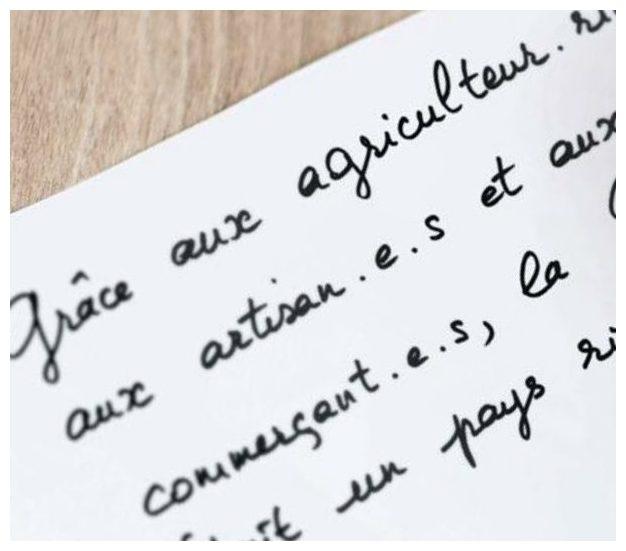 Grâce aux agriculteur.ri
aux artisan.e.s et aux
commerçant.e.s, la
un pays ri